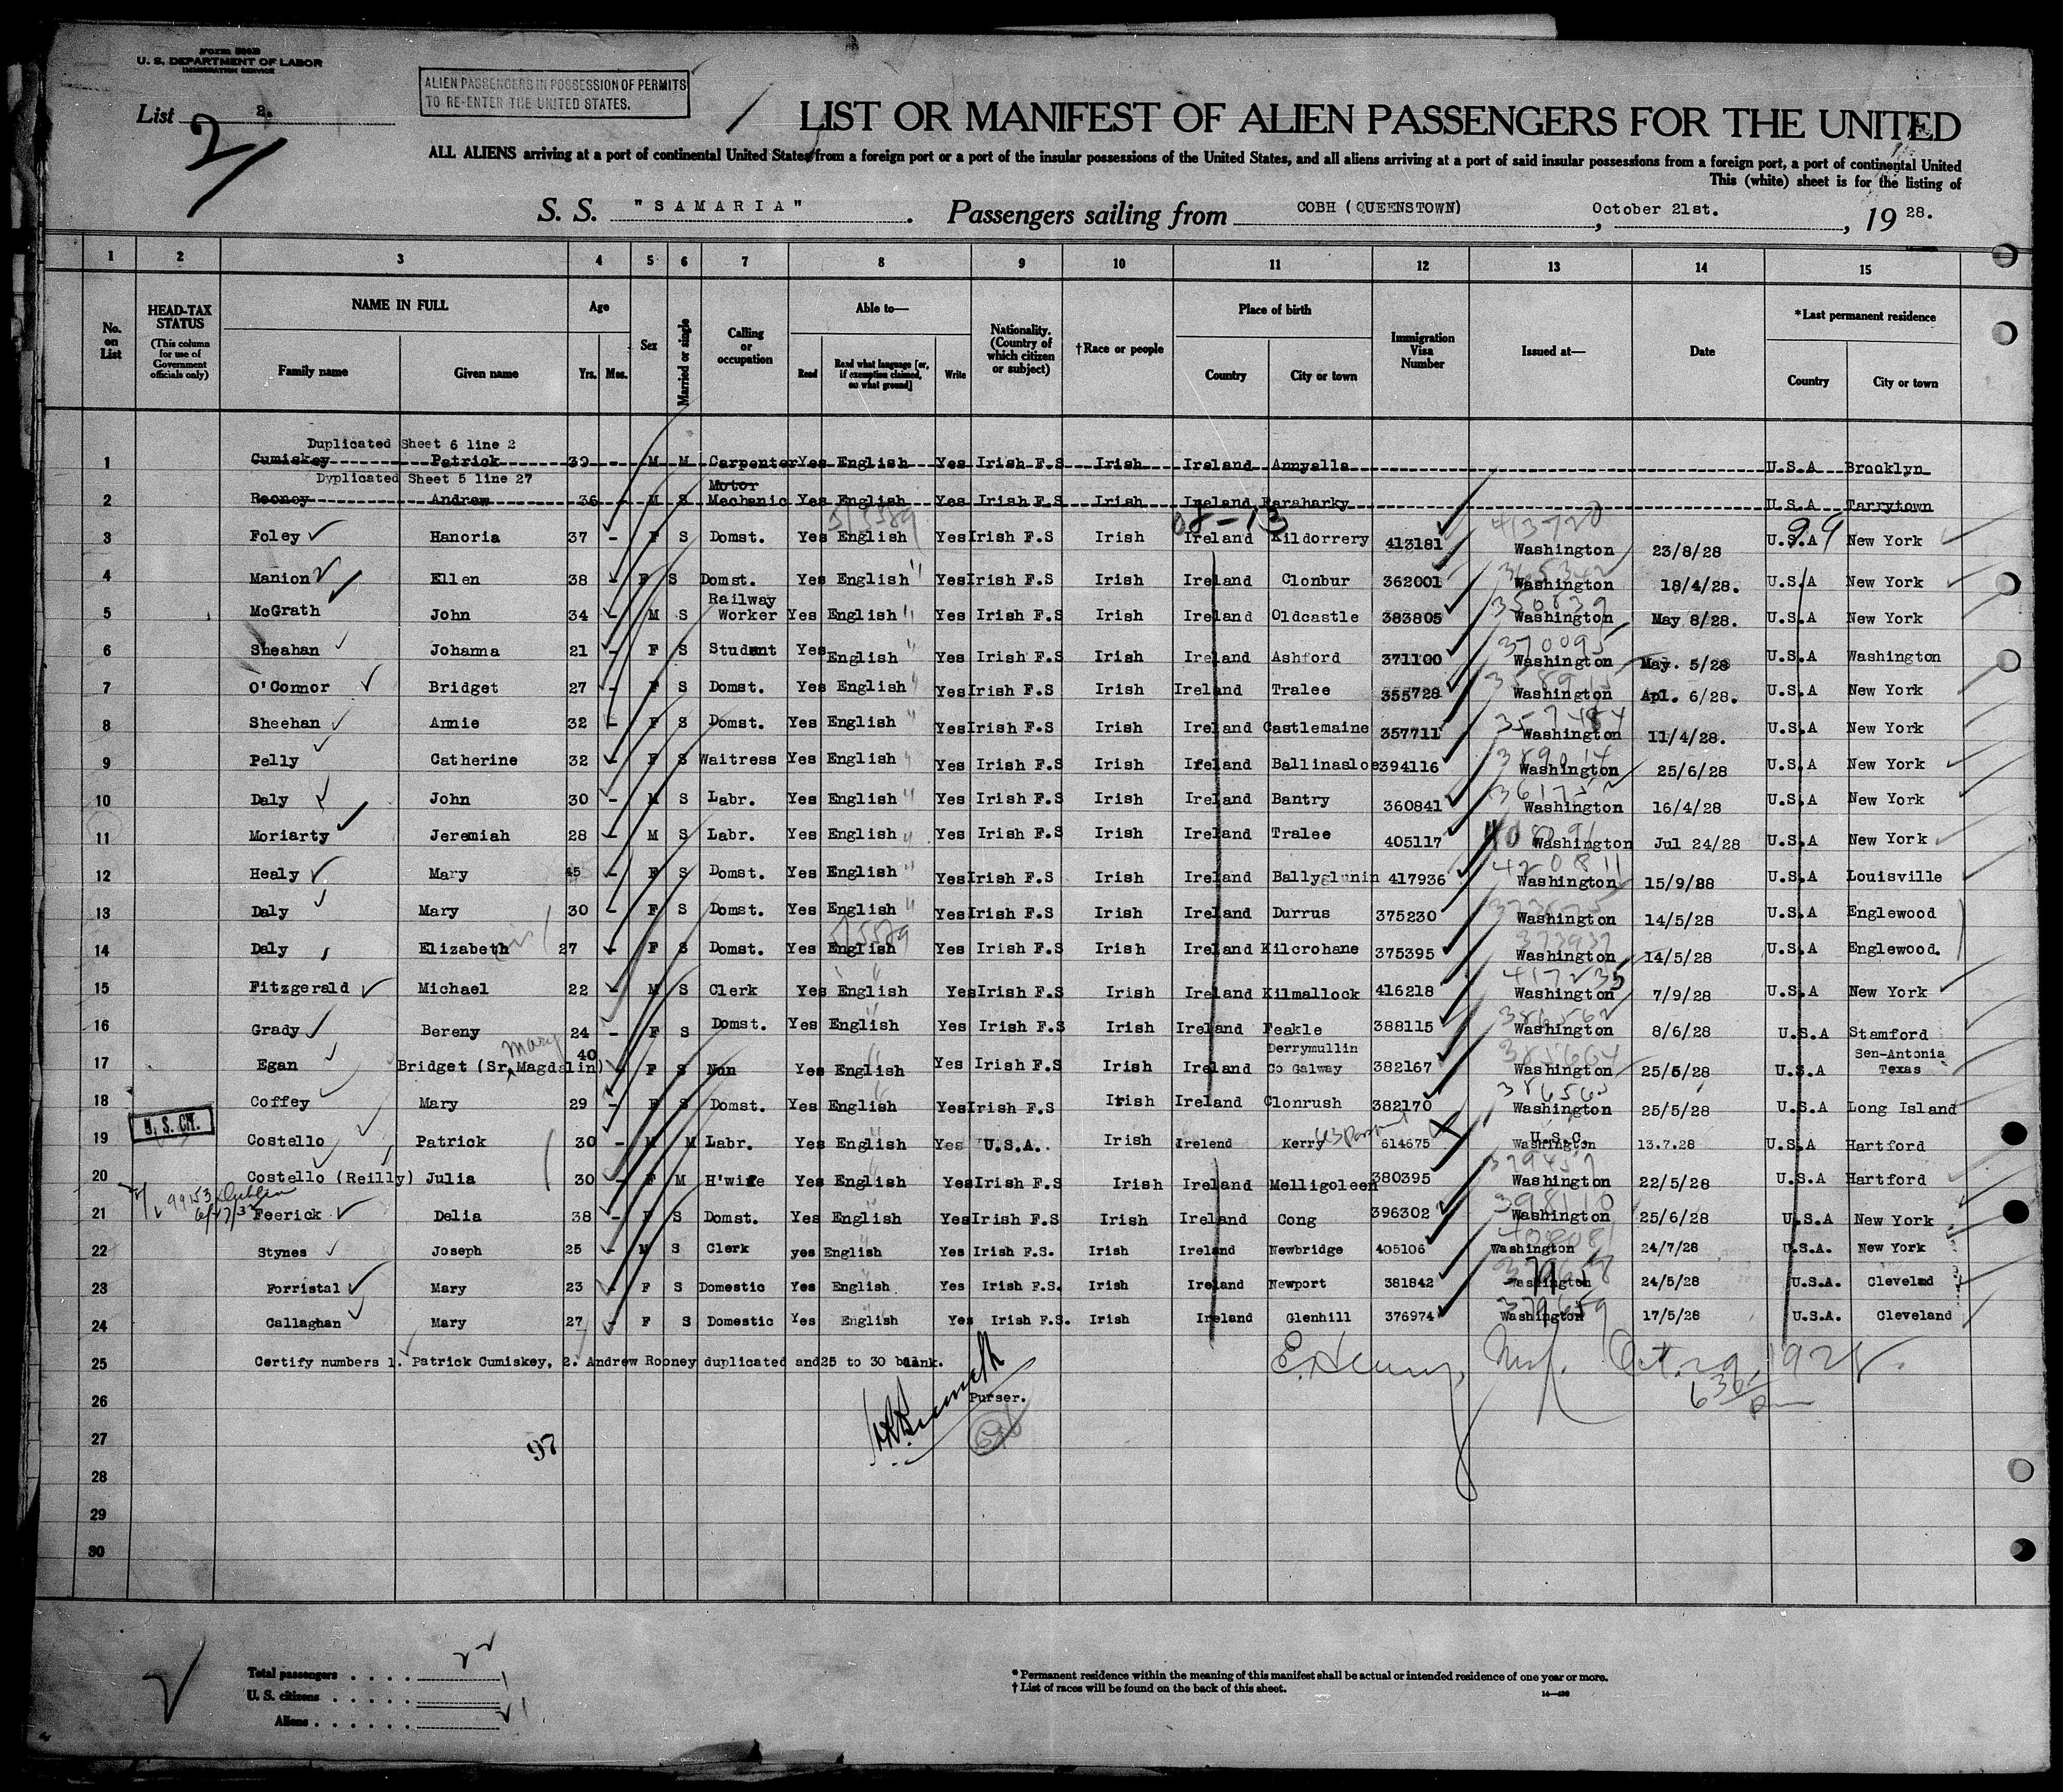 Form 500B
U. S. DEPARTMENT OF LABOR
IMMIGRATION SERVICE
ALIEN PASSENGERS IN POSSESSION OF PERMITS
TO RE-ENTER THE UNITED STATES.
List 2.
2
LIST OR MANIFEST OF ALIEN PASSENGERS FOR THE UNITED
ALL ALIENS arriving at a port of continental United States from a foreign port or a port of the insular possessions of the United States, and all aliens arriving at a port of said insular possessions from a foreign port, a port of continental United
This (white) sheet is for the listing of
S. S. "SAMARIA". Passengers sailing from COBH (QUEENSTOWN), October 21st., 19 28.
1 2 3 4 5 6 7 8 9 10 11 12 13 14 15
No. on List
HEAD-TAX STATUS (This column for use of Government officials only)
NAME IN FULL Family name Given name
Age Yrs. Mos.
Sex
Married or single
Calling or occupation
Able to— Read Read what language [or, if exemption claimed, on what ground] Write
Nationality. (Country of which citizen or subject)
†Race or people
Place of birth Country City or town
Immigration Visa Number
Issued at—
Date
*Last permanent residence Country City or town
Duplicated Sheet 6 line 2
1 Cumiskey Patrick 39 - M M Carpenter Yes English Yes Irish F.S Irish Ireland Annyalla U.S.A Brooklyn
Dyplicated Sheet 5 line 27
2 Rooney Andrew 36 - M S Motor Mechanic Yes English Yes Irish F.S Irish Ireland Raraharky U.S.A Tarrytown
08-13 99
3 Foley Hanoria 37 - F S Domst. Yes English Yes Irish F.S Irish Ireland Kildorrery 413181 413720 Washington 23/8/28 U.S.A New York
4 Manion Ellen 38 - F S Domst. Yes English " Yes Irish F.S Irish Ireland Clonbur 362001 Washington 18/4/28. U.S.A New York
5 McGrath John 34 - M S Railway Worker Yes English " Yes Irish F.S Irish Ireland Oldcastle 383805 Washington May 8/28. U.S.A New York
6 Sheahan Johanna 21 - F S Student Yes English " Yes Irish F.S Irish Ireland Ashford 371100 370095 Washington May. 5/28 U.S.A Washington
7 O'Connor Bridget 27 - F S Domst. Yes English " Yes Irish F.S Irish Ireland Tralee 355728 Washington Apl. 6/28. U.S.A New York
8 Sheehan Annie 32 - F S Domst. Yes English " Yes Irish F.S Irish Ireland Castlemaine 357711 357484 Washington 11/4/28. U.S.A New York
9 Pelly Catherine 32 - F S Waitress Yes English " Yes Irish F.S Irish Ireland Ballinasloe 394116 Washington 25/6/28 U.S.A New York
10 Daly John 30 - M S Labr. Yes English " Yes Irish F.S Irish Ireland Bantry 360841 Washington 16/4/28 U.S.A New York
11 Moriarty Jeremiah 28 - M S Labr. Yes English " Yes Irish F.S Irish Ireland Tralee 405117 Washington Jul 24/28 U.S.A New York
12 Healy Mary 45 - F S Domst. Yes English " Yes Irish F.S Irish Ireland Ballyglunin 417936 420811 Washington 15/9/28 U.S.A Louisville
13 Daly Mary 30 - F S Domst. Yes English " Yes Irish F.S Irish Ireland Durrus 375230 Washington 14/5/28 U.S.A Englewood
14 Daly Elizabeth 27 - F S Domst. Yes English Yes Irish F.S Irish Ireland Kilcrohane 375395 373937 Washington 14/5/28 U.S.A Englewood.
15 Fitzgerald Michael 22 - M S Clerk Yes English Yes Irish F.S Irish Ireland Kilmallock 416218 417235 Washington 7/9/28 U.S.A New York
16 Grady Bereny 24 - F S Domst. Yes English Yes Irish F.S Irish Ireland Feakle 388115 Washington 8/6/28 U.S.A Stamford
17 Egan Bridget (Sr. Mary Magdalin) 40 F S Nun Yes English Yes Irish F.S Irish Ireland Derrymullin Co Galway 382167 Washington 25/5/28 U.S.A Sen-Antonia Texas
18 Coffey Mary 29 - F S Domst. Yes English Yes Irish F.S Irish Ireland Clonrush 382170 Washington 25/5/28 U.S.A Long Island
19 U. S. CIT. Costello Patrick 30 - M M Labr. Yes English Yes U.S.A. Irish Irelend Kerry 614675 U.S.C. Washington 13.7.28 U.S.A Hartford
20 Costello (Reilly) Julia 30 - F M H'wife Yes English Yes Irish F.S Irish Ireland Melligoleen 380395 379457 Washington 22/5/28 U.S.A Hartford
21 Feerick Delia 38 - F S Domst. Yes English Yes Irish F.S Irish Ireland Cong 396302 398110 Washington 25/6/28 U.S.A New York
22 Stynes Joseph 25 - M S Clerk yes English Yes Irish F.S. Irish Ireland Newbridge 405106 Washington 24/7/28 U.S.A. New York
23 Forristal Mary 23 - F S Domestic Yes English Yes Irish F.S. Irish Ireland Newport 381842 Washington 24/5/28 U.S.A. Cleveland
24 Callaghan Mary 27 - F S Domestic Yes English Yes Irish F.S. Irish Ireland Glenhill 376974 379659 Washington 17/5/28 U.S.A. Cleveland
25 Certify numbers 1. Patrick Cumiskey, 2. Andrew Rooney duplicated and 25 to 30 blank.
Oct. 29 1928.
630 pm
26 Purser.
27 97
28
29
30
Total passengers . . . . 22
U. S. citizens . . . . . 1
Aliens . . . . . . 21
* Permanent residence within the meaning of this manifest shall be actual or intended residence of one year or more.
† List of races will be found on the back of this sheet.